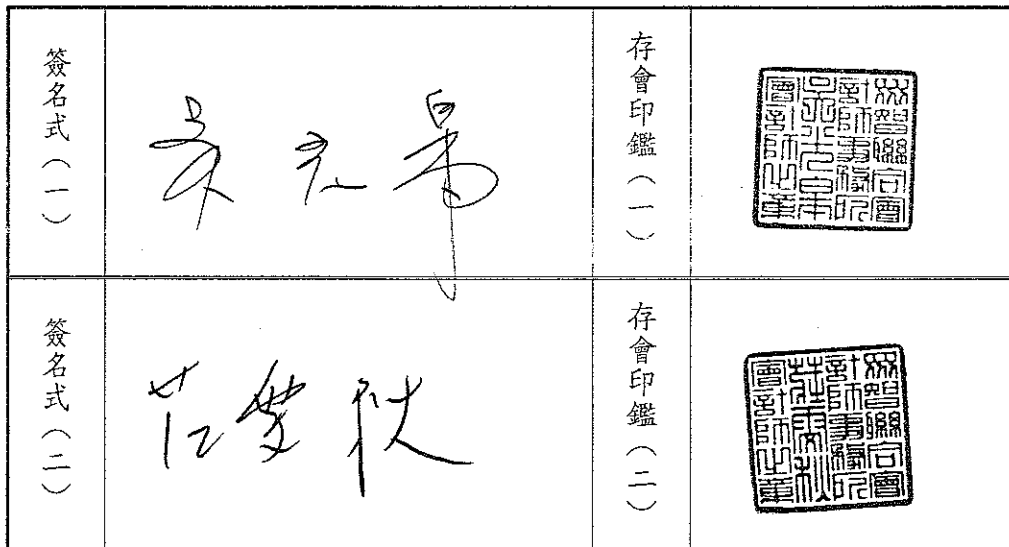 簽名式（一）
吳光皋
存會印鑑（一）
眾智聯合會
計師事務所
吳光皋
會計師之章
簽名式（二）
存會印鑑（二）
眾智聯合會
計師事務所
會計師之章